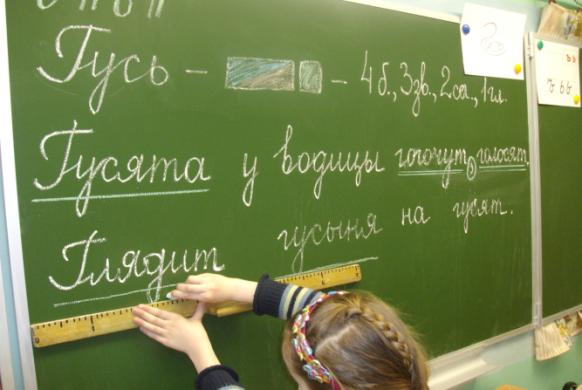 Гусь – – 4б., 3зв., 2сл., 1гл.
Гусята у водицы гогочут, голосят.
Глядит гусыня на гусят.